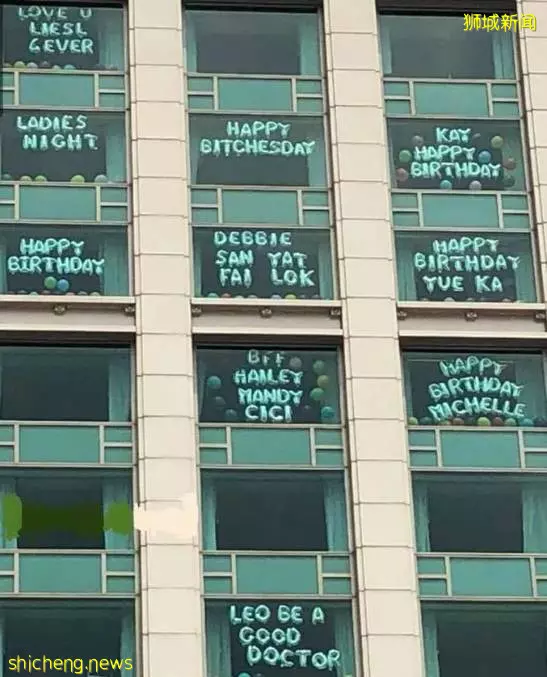 狮城新闻
LOVE U
LIESL
6EVER
LADIES
NIGHT
HAPPY
BITCHESDAY
KAY
HAPPY
BIRTHDAY
HAPPY
BIRTHDAY
DEBBIE
SAN YAT
FAI LOK
HAPPY
BIRTHDAY
YUE KA
BFF
HAILEY
MANDY
CICI
HAPPY
BIRTHDAY
MICHELLE
LEO BE A
GOOD
DOCTOR
shicheng.news